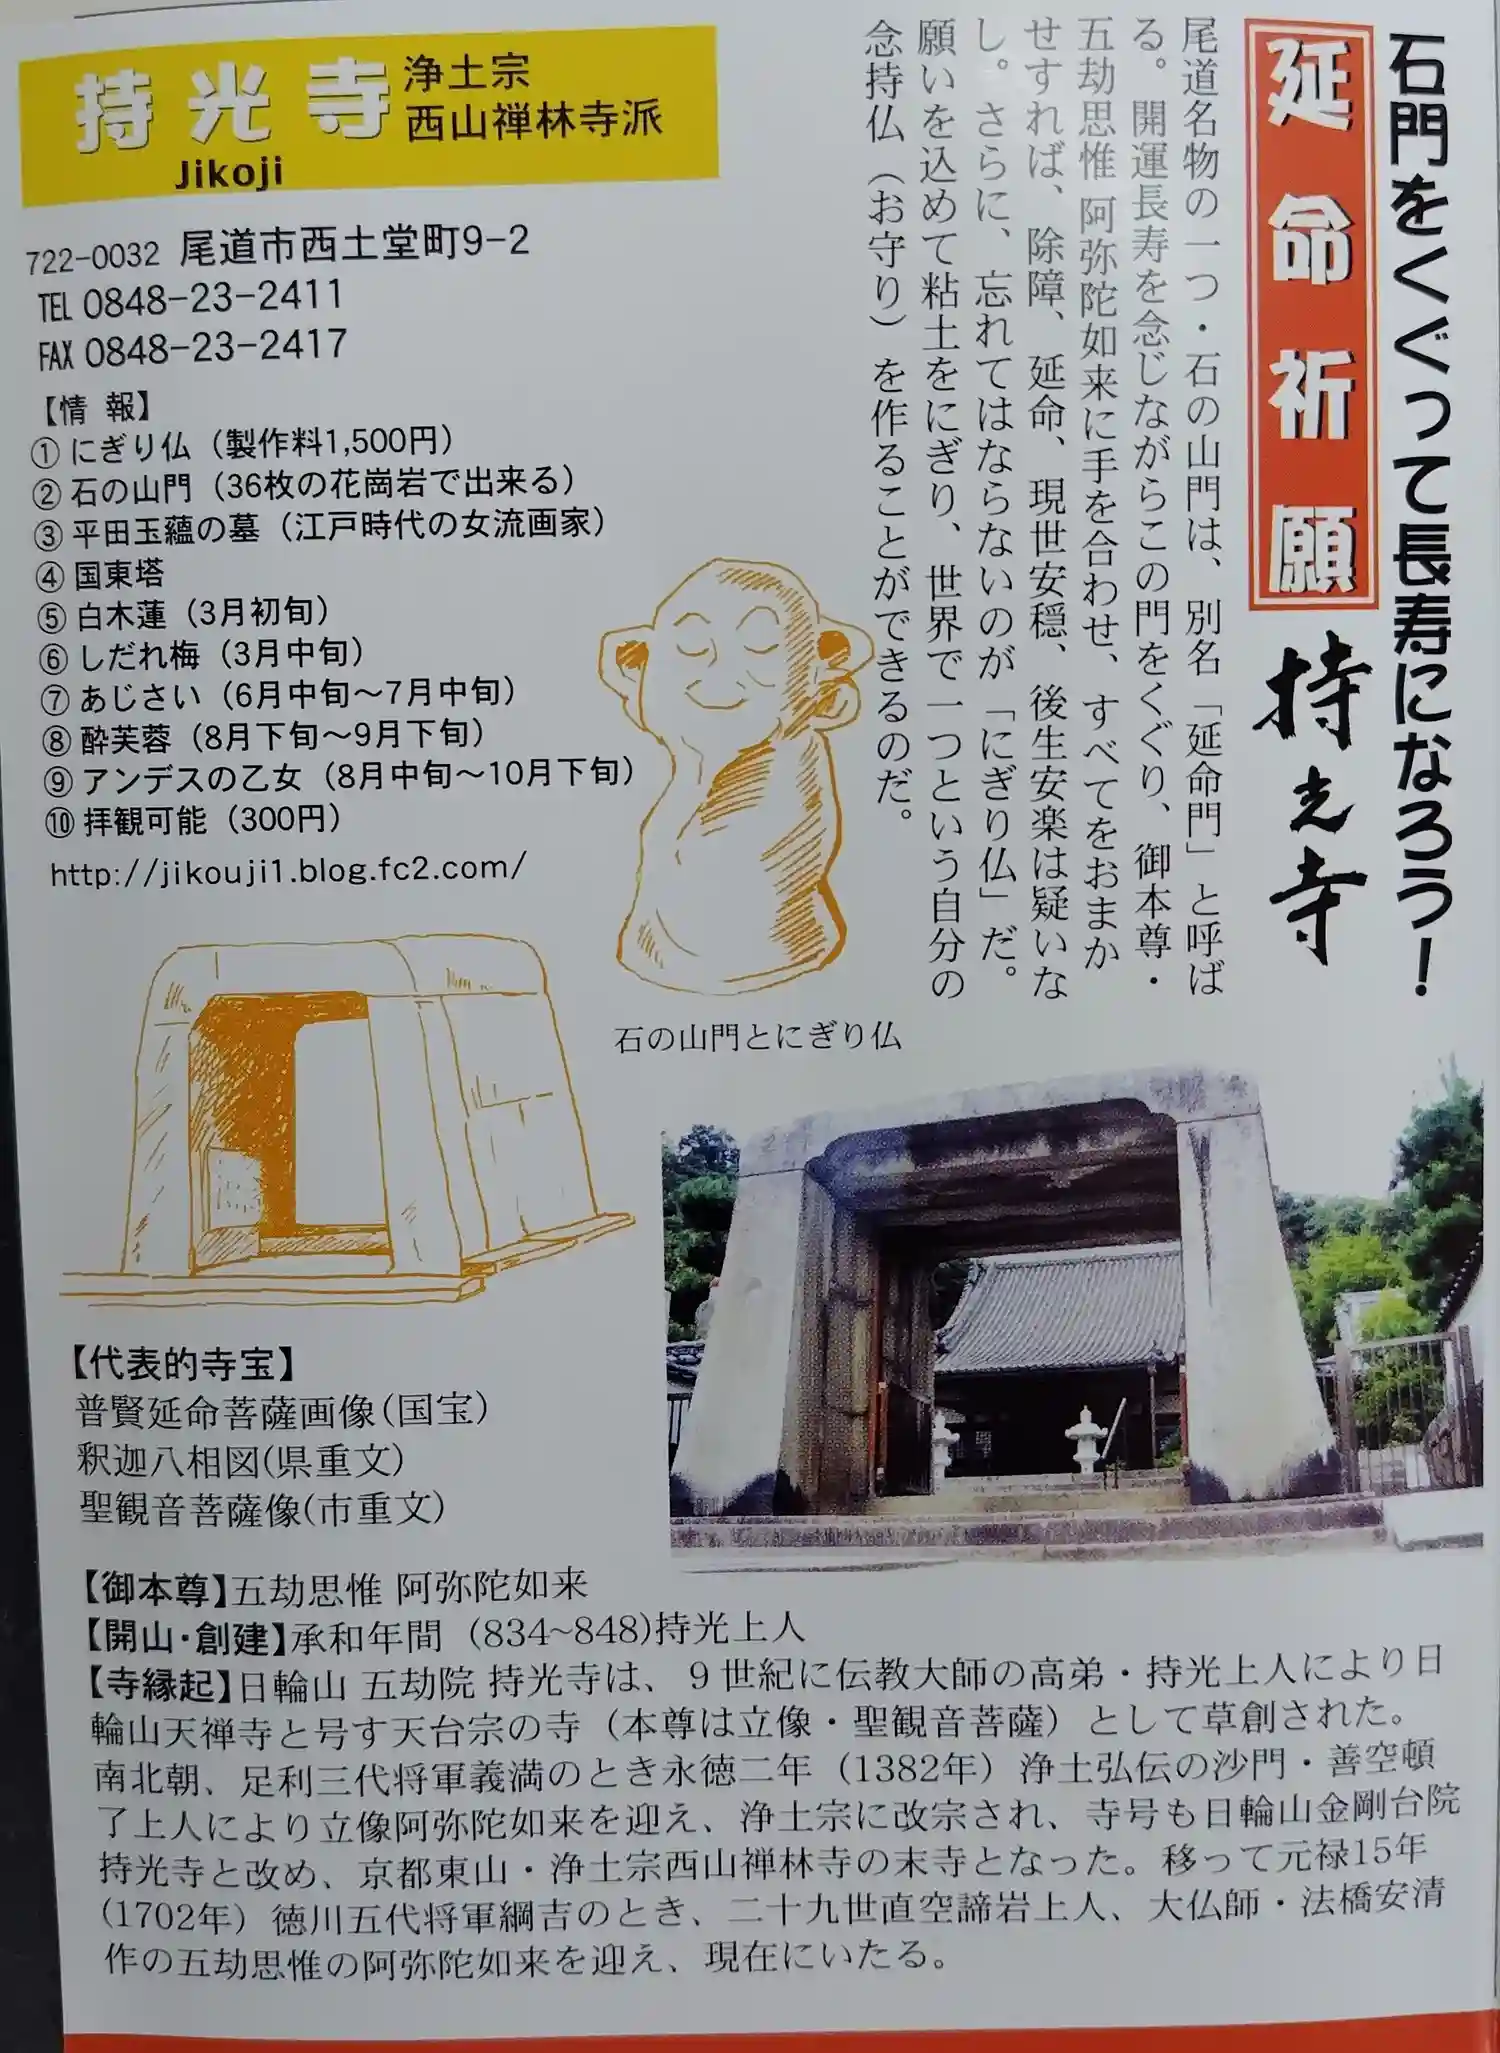 石門をくぐって長寿になろう！
延命祈願
持光寺
尾道名物の一つ・石の山門は、別名「延命門」と呼ば
る。開運長寿を念じながらこの門をくぐり、御本尊・
五劫思惟 阿弥陀如来に手を合わせ、すべてをおまか
せすれば、除障、延命、現世安穏、後生安楽は疑いな
し。さらに、忘れてはならないのが「にぎり仏」だ。
願いを込めて粘土をにぎり、世界で一つという自分の
念持仏（お守り）を作ることができるのだ。
持光寺
Jikoji
浄土宗
西山禅林寺派
722-0032 尾道市西土堂町9-2
TEL 0848-23-2411
FAX 0848-23-2417
【情 報】
① にぎり仏（製作料1,500円）
② 石の山門（36枚の花崗岩で出来る）
③ 平田玉蘊の墓（江戸時代の女流画家）
④ 国東塔
⑤ 白木蓮（3月初旬）
⑥ しだれ梅（3月中旬）
⑦ あじさい（6月中旬～7月中旬）
⑧ 酔芙蓉（8月下旬～9月下旬）
⑨ アンデスの乙女（8月中旬～10月下旬）
⑩ 拝観可能（300円）
http://jikouji1.blog.fc2.com/
石の山門とにぎり仏
【代表的寺宝】
普賢延命菩薩画像(国宝)
釈迦八相図(県重文)
聖観音菩薩像(市重文)
【御本尊】五劫思惟 阿弥陀如来
【開山・創建】承和年間（834~848)持光上人
【寺縁起】日輪山 五劫院 持光寺は、９世紀に伝教大師の高弟・持光上人により日
輪山天禅寺と号す天台宗の寺（本尊は立像・聖観音菩薩）として草創された。
南北朝、足利三代将軍義満のとき永徳二年（1382年）浄土弘伝の沙門・善空頓
了上人により立像阿弥陀如来を迎え、浄土宗に改宗され、寺号も日輪山金剛台院
持光寺と改め、京都東山・浄土宗西山禅林寺の末寺となった。移って元禄15年
(1702年）徳川五代将軍綱吉のとき、二十九世直空諦岩上人、大仏師・法橋安清
作の五劫思惟の阿弥陀如来を迎え、現在にいたる。